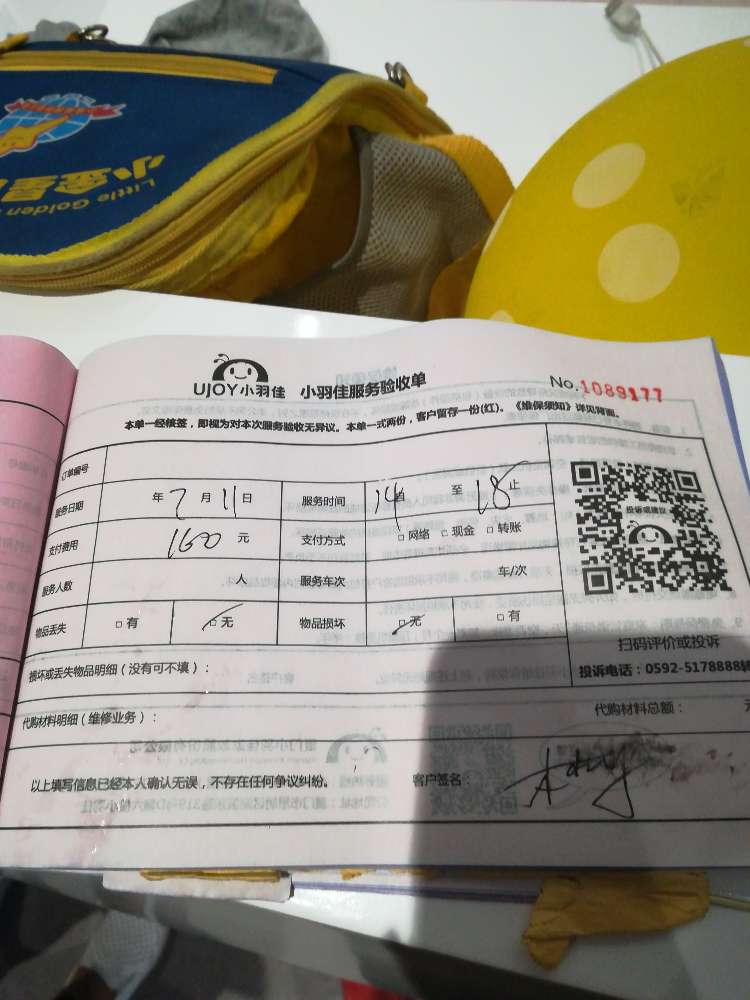 小金星
Little Golden
UJOY小羽佳 小羽佳服务验收单
No.1089177
本单一经核签，即视为对本次服务验收无异议。本单一式两份，客户留存一份(红)。《维保须知》详见背面。
订单编号
服务日期 年 7 月 11 日 服务时间 14 自 至 18 止
支付费用 160 元 支付方式 □网络 □现金 □转账
服务人数 人 服务车次 车/次
物品丢失 □有 □无 物品损坏 □无 □有
投诉或建议
扫码评价或投诉
投诉电话：0592-5178888转
损坏或丢失物品明细（没有可不填）：
代购材料明细（维修业务）： 代购材料总额： 元
以上填写信息已经本人确认无误，不存在任何争议纠纷。 客户签名：